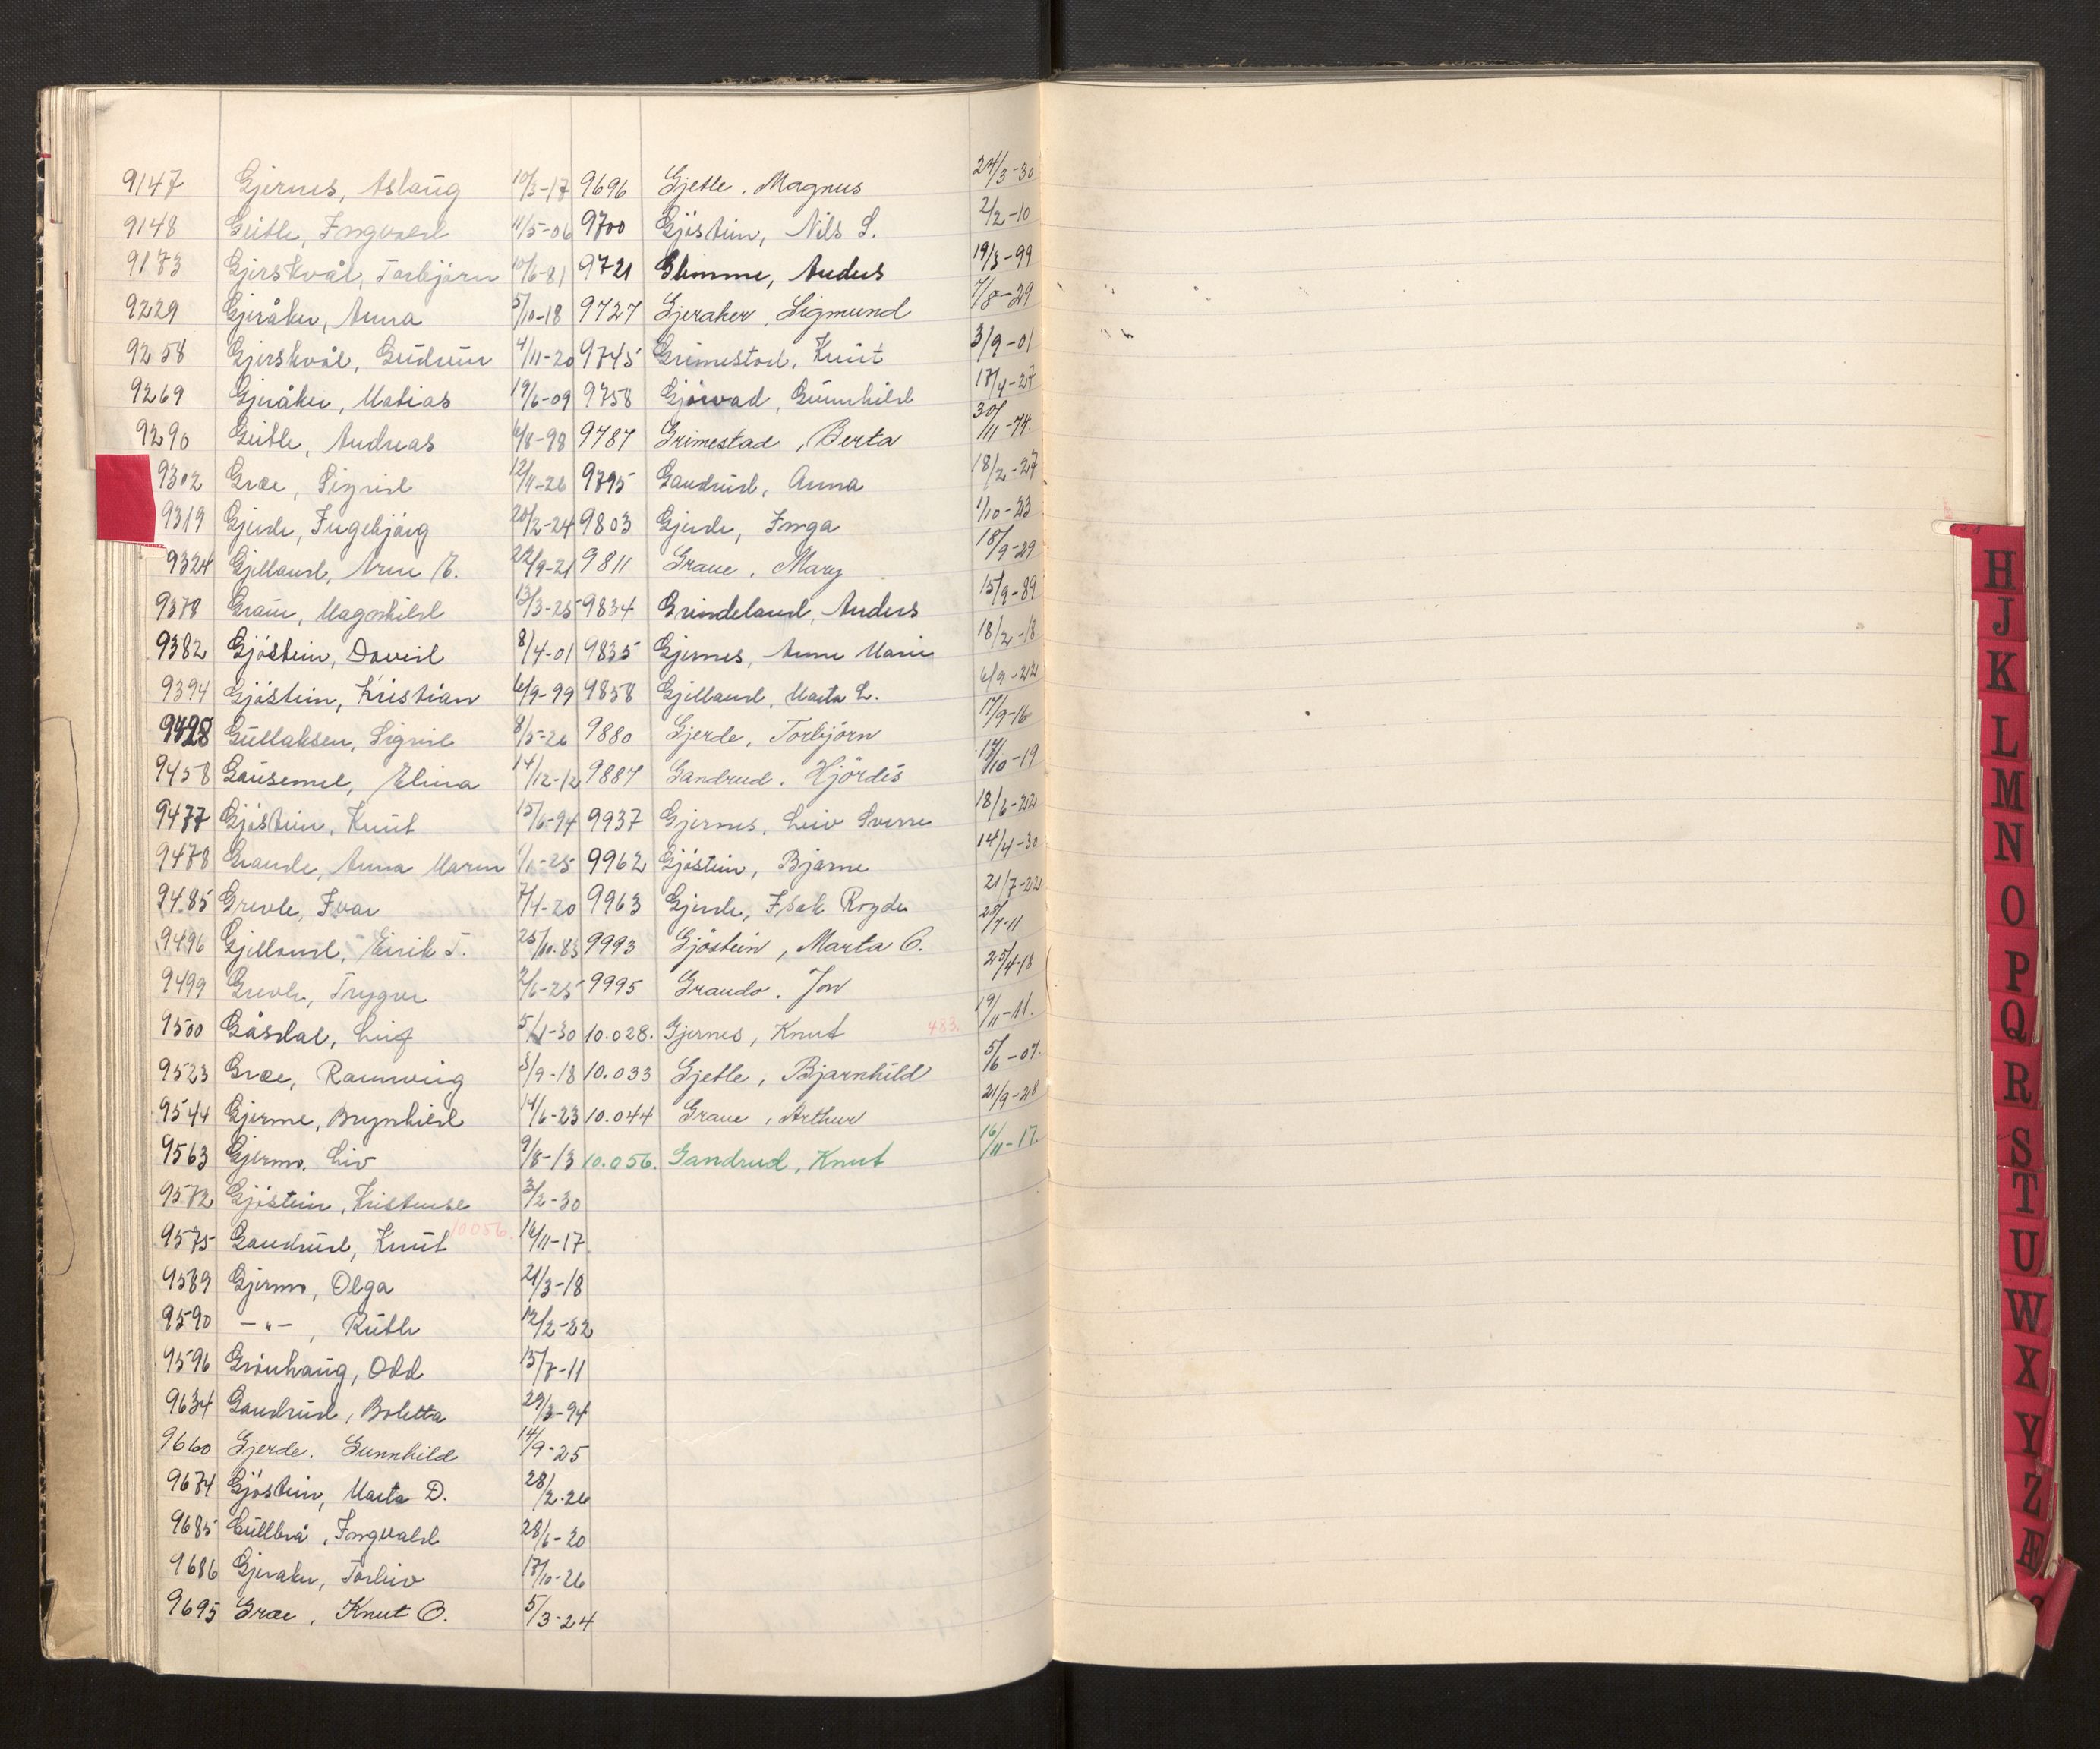 9147 Gjernes, Aslaug 10/3-17
9148 Geitle, Ingvald 11/5-06
9173 Gjerskvål, Torbjørn 10/6-81
9229 Gjeråker, Anna 5/10-18
9258 Gjerskvål, Gudrun 4/11-20
9269 Gjeråker, Matias 19/6-09
9290 Geitle, Andreas 6/8-98
9302 Græe, Sigrid 12/4-26
9319 Gjerde, Ingebjørg 20/2-24
9324 Gjilland, Arne E. 22/9-21
9378 Graue, Magnhild 13/3-25
9382 Gjøstein, David 8/4-01
9394 Gjøstein, Kristian 6/9-99
9428 Gullaksen, Sigrid 8/5-26
9458 Gausemel, Elina 14/12-12
9477 Gjøstein, Knut 15/6-94
9478 Graude, Anna Maren
9485 Grevle, Ivar 7/4-20
9496 Gjilland, Eirik T. 25/10-83
9499 Grevle, Trygve 2/6-25
9500 Gåsdal, Leif 5/1-30
9523 Græe, Rannveig 3/9-18
9544 Gjerme, Brynhild 14/6-23
9563 Gjermo, Liv 9/8-13
9572 Gjøstein, Kristense 3/2-30
9575 Gandrud, Knut 10056. 16/11-17
9589 Gjermo, Olga 21/3-18
9590 -"-, Ruth 12/2-22
9596 Grønhaug, Odd 15/7-11
9634 Gandrud, Boletta 29/3-94
9660 Gjerde, Gunnhild 14/9-25
9674 Gjøstein, Marta D. 28/2-26
9685 Gullbrå, Ingvald 28/6-20
9686 Gjeraker, Torleiv 17/10-26
9695 Græe, Knut O. 5/3-24
9696 Gjetle, Magnus 24/3-30
9700 Gjøstein, Nils S. 2/2-10
9721 Glimme, Anders 19/3-99
9727 Gjeraker, Sigmund 7/8-29
9745 Grimestad, Knut 3/9-01
9758 Gjørvad, Gunnhild 17/4-27
9787 Grimestad, Berta 30/11-74.
9795 Gandrud, Anna 18/2-27
9803 Gjerde, Inga 1/10-23
9811 Graue, Mary 18/9-29
9834 Grindeland, Anders 15/9-89
9835 Gjernes, Anne Marie 18/2-18
9858 Gjilland, Marta L. 6/9-22
9880 Gjerde, Torbjörn 17/9-16
9887 Gandrud, Hjördis 17/10-19
9937 Gjernes, Leiv Sverre 18/6-22
9962 Gjøstein, Bjarne 14/4-30
9963 Gjerde, Isak Røyde 21/7-22
9993 Gjöstein, Marta O. 28/7-11
9995 Graude, Jon 25/4-18
10.028. Gjernes, Knut 483. 19/11-11.
10.033 Gjetle, Bjarnhild 5/6-07.
10.044 Graue, Arthur 21/9-28
10.056. Gandrud, Knut 16/11-17.
H
J
K
L
M
N
O
P
Q
R
S
T
U
W
X
Y
Z
Æ